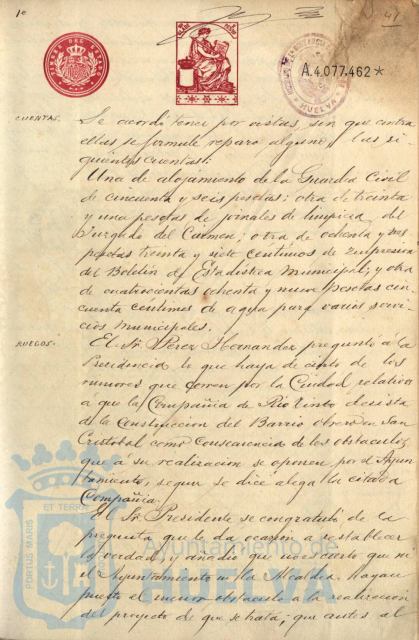 1º
41
TIMBRE DEL ESTADO
HUELVA
A.4.077.462*
CUENTAS.
Se acordó tener por vistas, sin que contra
ellas se formule reparo alguno, las si-
guientes cuentas:
Una de alojamiento de la Guardia Civil
de cincuenta y seis pesetas; otra de treinta
y una pesetas de jornales de limpieza del
Juzgado del Carmen; otra de ochenta y tres
pesetas treinta y siete centimos de impresion
del Boletin de Estadística Municipal; y otra
de cuatrocientas ochenta y nueve pesetas cin-
cuenta céntimos de agua para varios servi-
cios municipales.
RUEGOS.
El Sr. Pérez Hernandez preguntó á la
Presidencia lo que haya de cierto de los
rumores que corren por la Ciudad relativo
a que la Compañia de Rio Tinto desista
de la Construccion del Barrio obrero en San
Cristobal como Consecuencia de los obstaculos
que á su realizacion se oponen por el Ayun-
tamiento, segun se dice alega la citada
Compañia.
El Sr. Presidente se congratuló de la
pregunta que le da ocasion á establecer
la verdad, y añadió que no es cierto que ni
el Ayuntamiento ni la Alcaldia hayan
puesto el menor obstaculo a la realizacion
del proyecto de que se trata, que antes al
PORTUS MARIS
ET TERRE
Ayuntamiento de
HUELVA